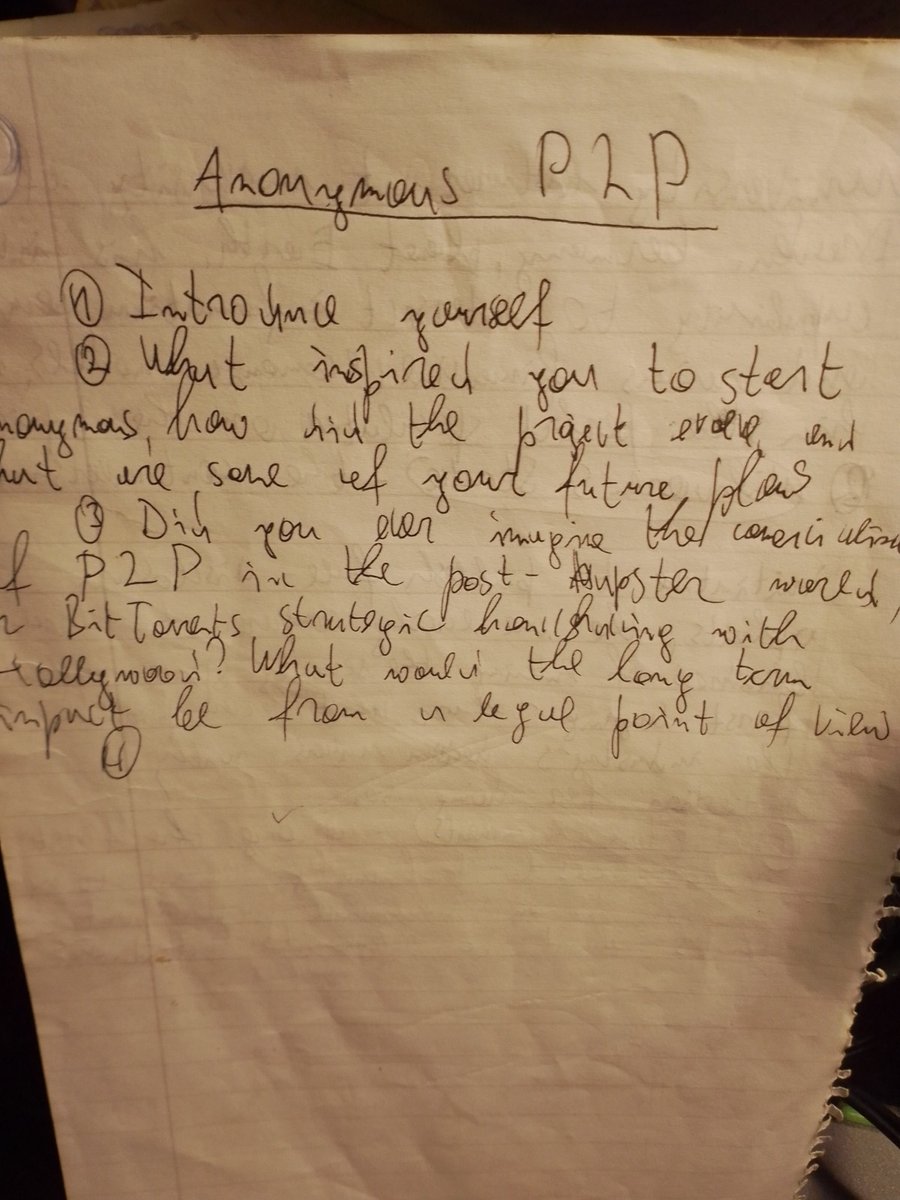 Anonymous P2P
① Introduce yourself
② What inspired you to start
nonymous, how did the project evolve, and
hat are some of your future plans
③ Did you ever imagine the
f P2P in the post-Napster world,
BitTorrents strategic handshaking with
Hollywood? What would the long term
impact be from a legal point of view
④